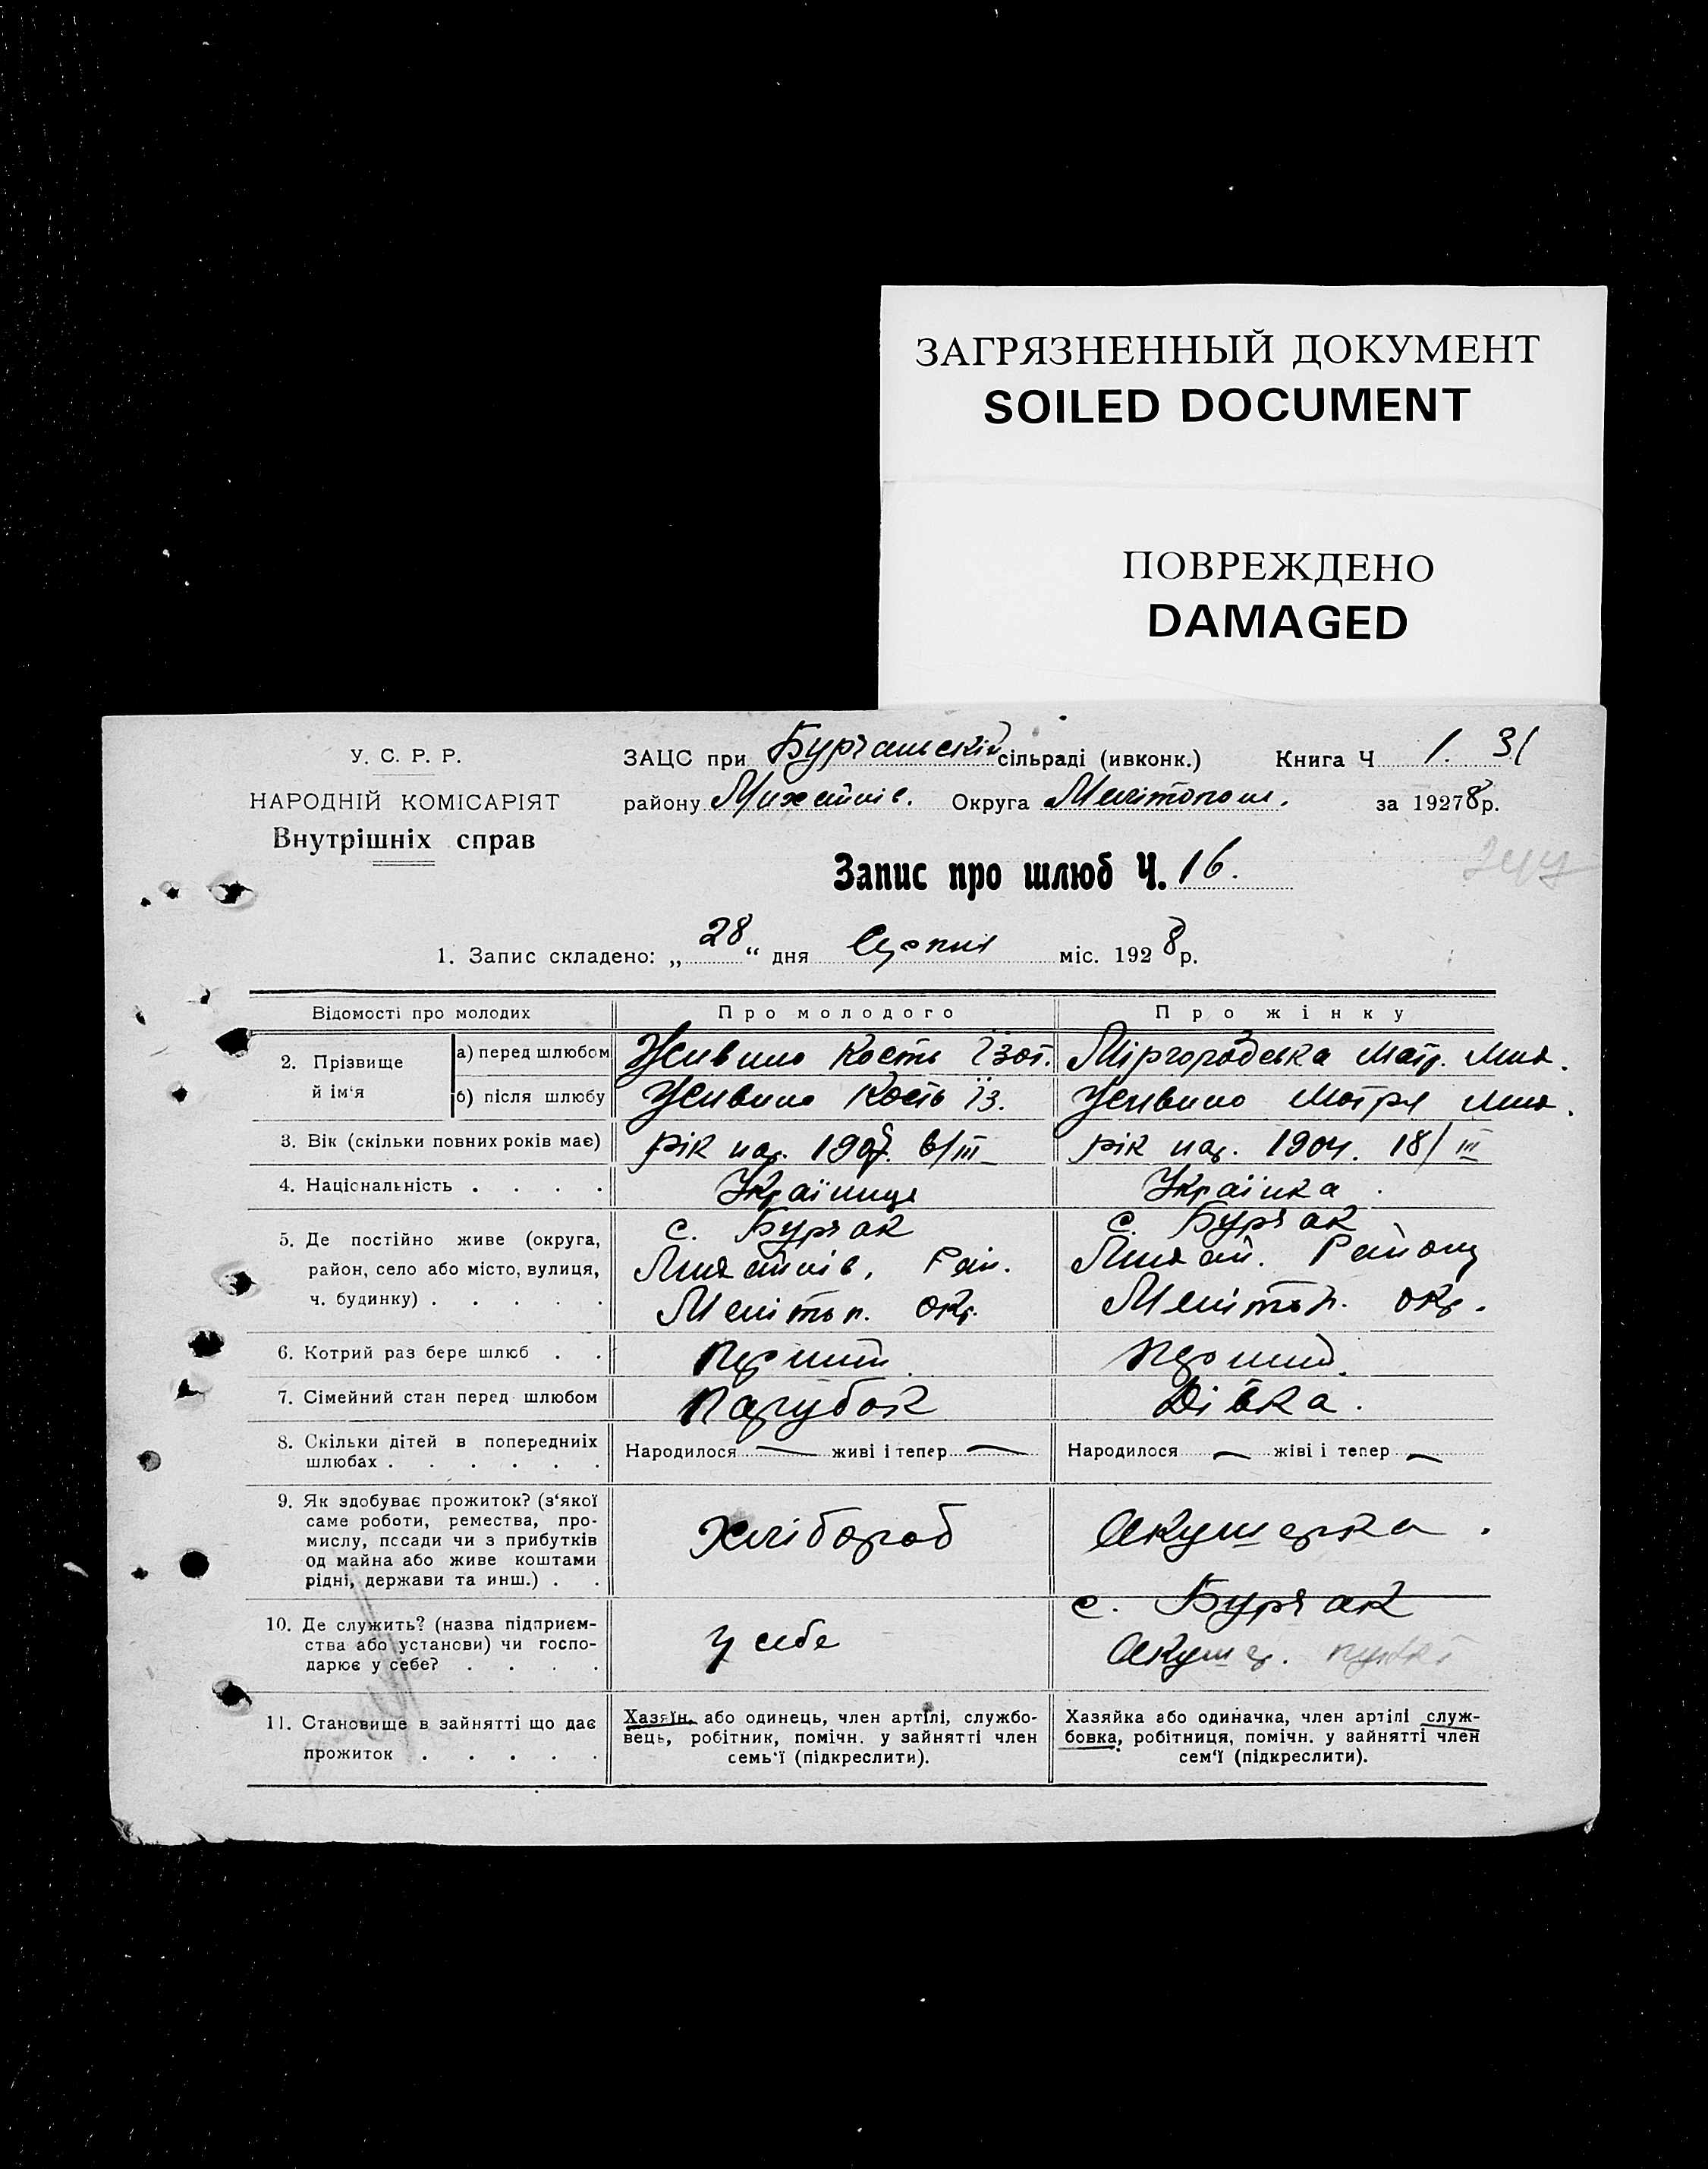 ЗАГРЯЗНЕННЫЙ ДОКУМЕНТ
SOILED DOCUMENT
ПОВРЕЖДЕНО
DAMAGED
У. С. Р. Р.
НАРОДНІЙ КОМІСАРІЯТ
Внутрішніх справ
ЗАЦС при Бурчацькій сільраді (ивконк.) Книга Ч 1. 31
району Михайлів. Округа Мелітопольш. за 19278р.
Запис про шлюб Ч. 16.
1. Запис складено: „28“ дня Серпня міс. 1928р.
Відомості про молодих Про молодого Про жінку
2. Прізвище й ім‘я
а) перед шлюбом Кость Ізот. Міргородська Мотр. Мих.
б) після шлюбу Кость Із. Мотря Мих.
3. Вік (скільки повних років має) рік нар. 190 6/III рік нар. 1904. 18/III
4. Національність . . . . Українець Українка .
5. Де постійно живе (округа, район, село або місто, вулиця, ч. будинку) . . . . .
с. Бурчак
Михайлів. Рай.
Мелітоп. окр.
с. Бурчак
Михай. Району
Мелітоп. окр.
6. Котрий раз бере шлюб . . Перший Перший.
7. Сімейний стан перед шлюбом Парубок Дівка.
8. Скільки дітей в попередниіх шлюбах . . . . . .
Народилося — живі і тепер — Народилося — жіві і тепер —
9. Як здобуває прожиток? (з‘якої
саме роботи, ремества, про-
мислу, пссади чи з прибутків
од майна або живе коштами
рідні, держави та инш.) . .
Хлібороб Акушерка .
10. Де служить? (назва підприєм-
ства або установи) чи госпо-
дарює у себе? . . . .
у себе
с. Бурчак
Акушер. пункті
11. Становище в зайнятті що дає
прожиток . . . . .
Хазяїн, або одинець, член артілі, службо-
вець, робітник, помічн. у зайнятті член
семь‘ї (підкреслити).
Хазяйка або одиначка, член артілі служ-
бовка, робітниця, помічн. у зайнятті член
сем‘ї (підкреслити).